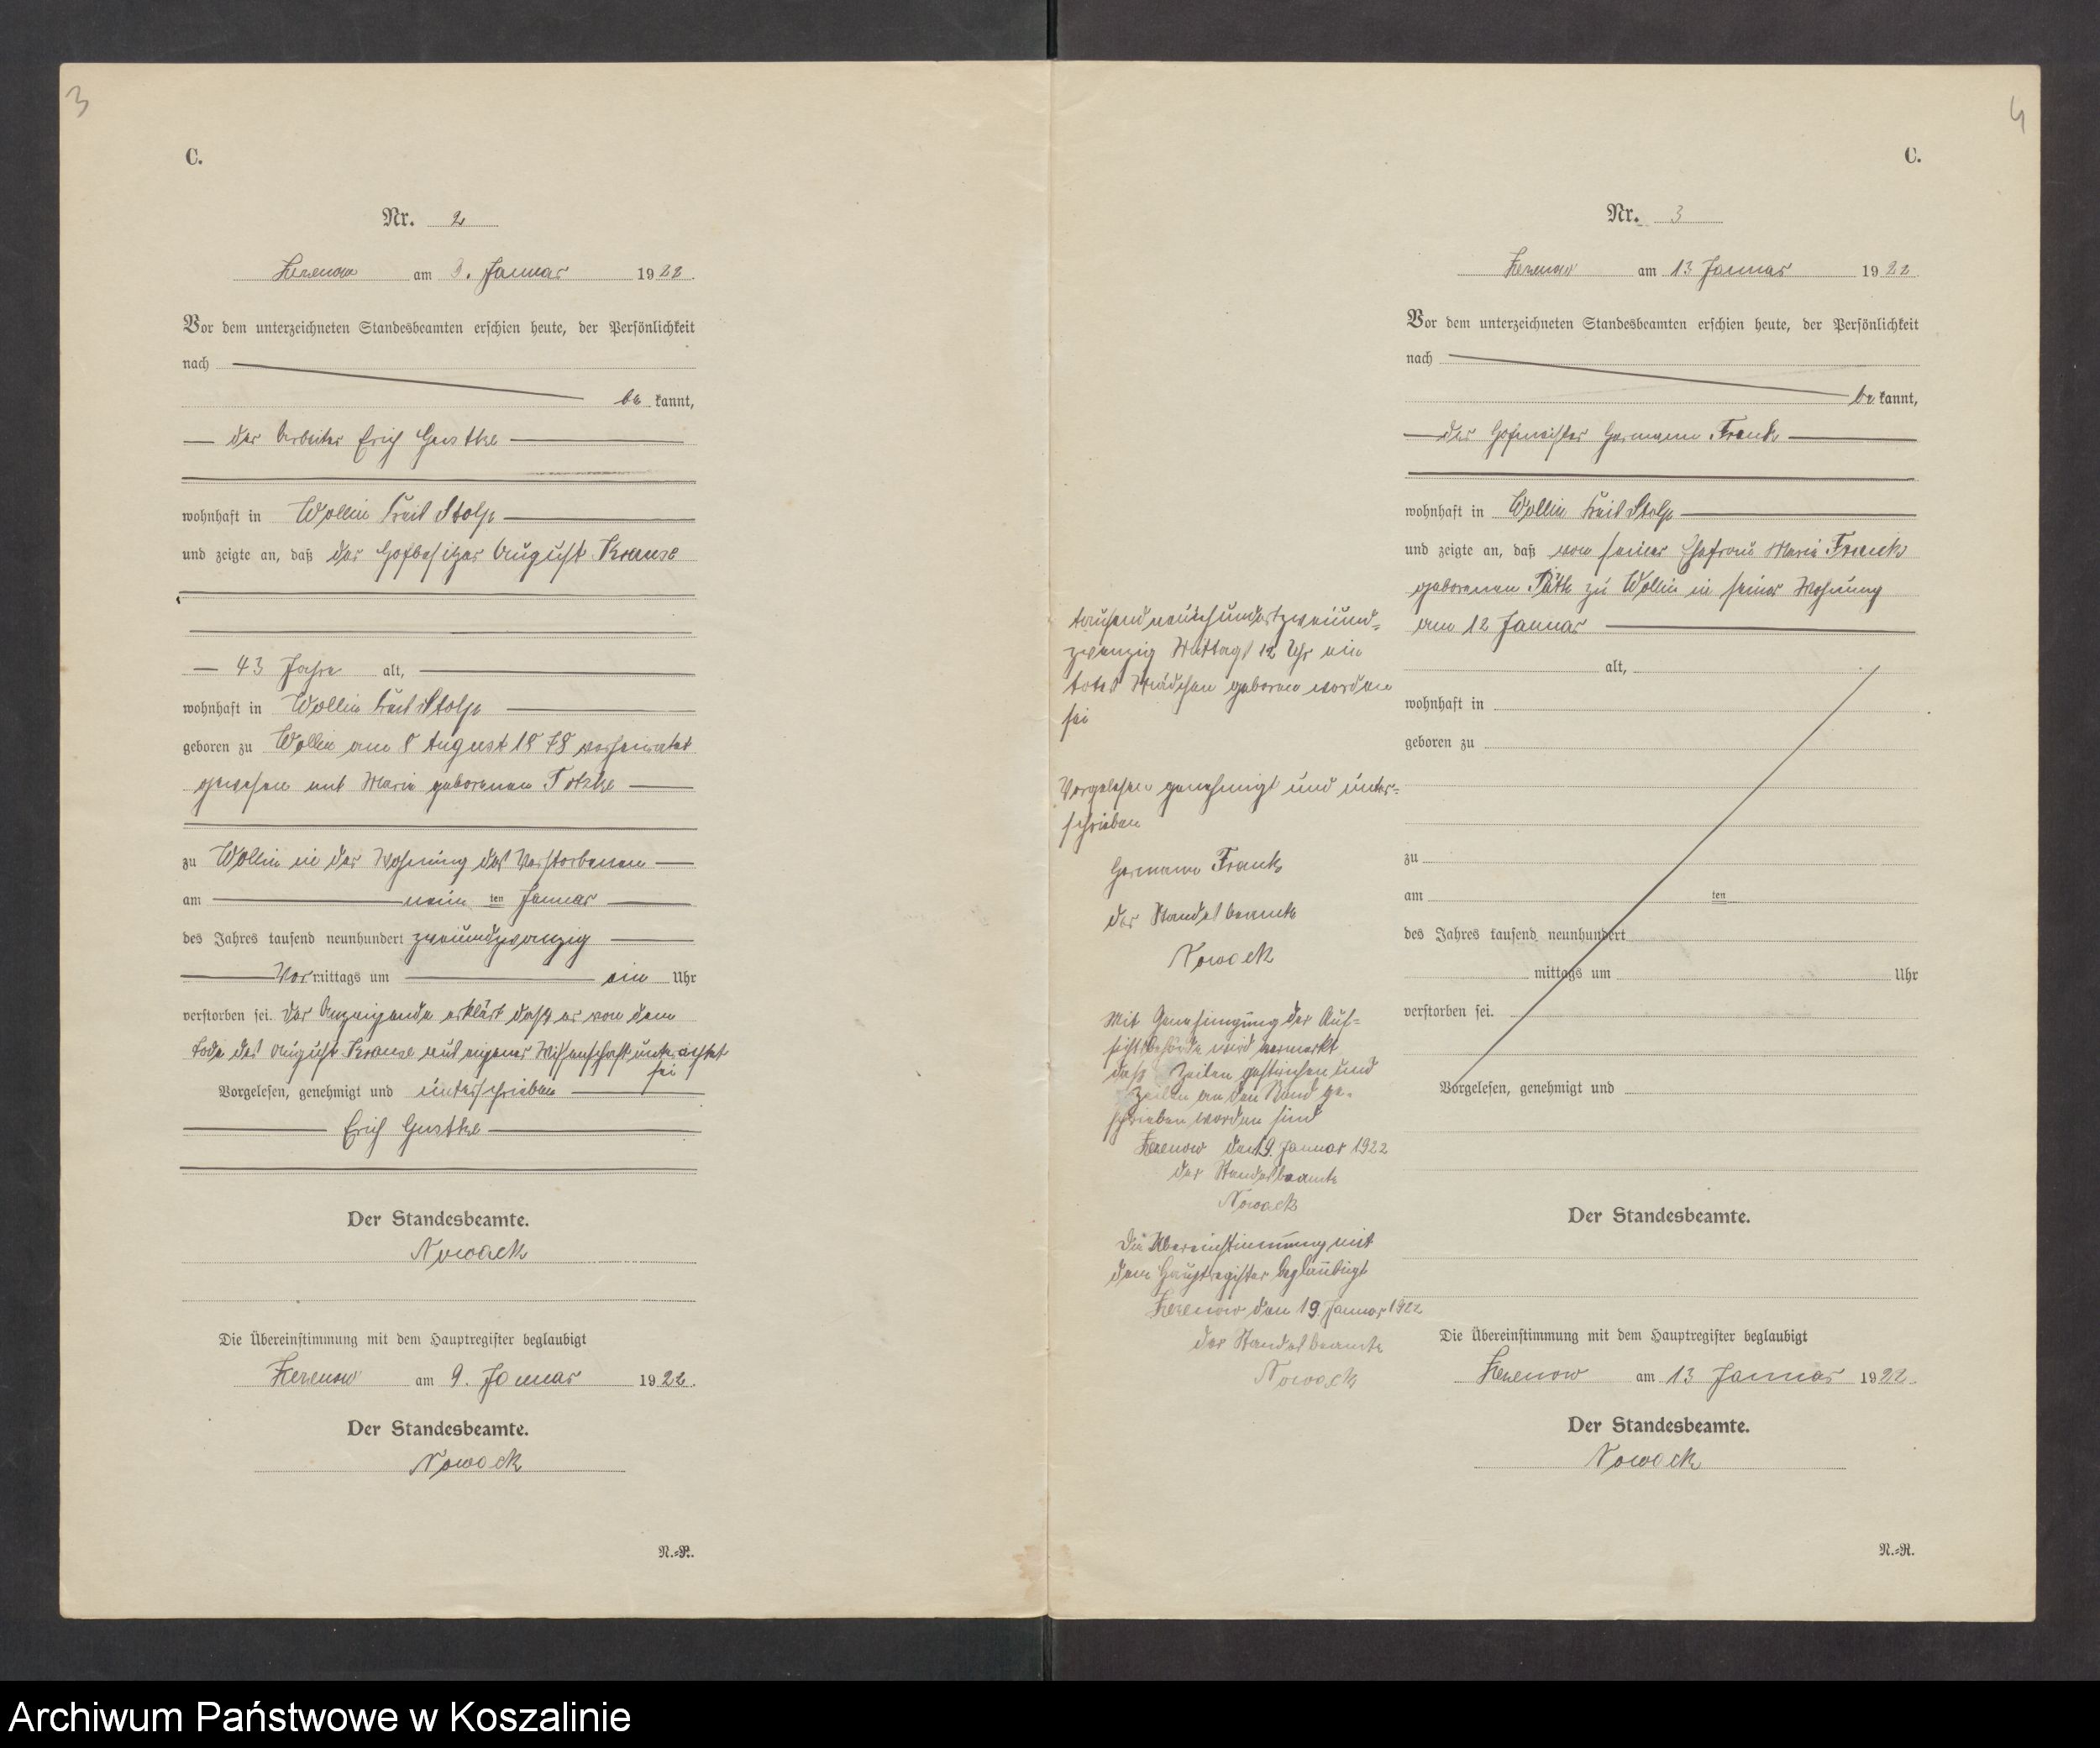 3
C.
Nr. 2
Zezenow am 3. Januar 1922.
Vor dem unterzeichneten Standesbeamten erschien heute, der Persönlichkeit
nach
be kannt,
der Arbeiter Erich Gustke
wohnhaft in Wollin Kreis Stolp
und zeigte an, daß der Hofbesitzer August Krause
43 Jahre alt,
wohnhaft in Wollin Kreis Stolp
geboren zu Wollin am 8 August 1878 verheiratet
gewesen mit Marie geborenen Totzke
zu Wollin in der Wohnung des Verstorbenen
am neun ten Januar
des Jahres tausend neunhundert zweiundzwanzig
Vor mittags um ein Uhr
verstorben sei. Der Anzeigende erklärt daß er von dem
Tode des August Krause aus eigener Wissenschaft unterrichtet
sei
Vorgelesen, genehmigt und unterschrieben
Erich Gustke
Der Standesbeamte.
Nowack
Die Übereinstimmung mit dem Hauptregister beglaubigt
Zezenow am 9. Januar 1922.
Der Standesbeamte.
Nowack
N.-R.
4
C.
Nr. 3
Zezenow am 13 Januar 1922.
Vor dem unterzeichneten Standesbeamten erschien heute, der Persönlichkeit
nach
be kannt,
der Hofmeister Hermann Frank
wohnhaft in Wollin Kreis Stolp
und zeigte an, daß von seiner Ehefrau Marie Frank
geborenen Päth zu Wollin in seiner Wohnung
am 12 Januar
alt,
wohnhaft in
geboren zu
zu
am ten
des Jahres tausend neunhundert
mittags um Uhr
verstorben sei.
Vorgelesen, genehmigt und
Der Standesbeamte.
Die Übereinstimmung mit dem Hauptregister beglaubigt
Zezenow am 13 Januar 1922.
Der Standesbeamte.
Nowack
N.-R.
tausendneunhundertzweiund-
zwanzig Mittags 12 Uhr ein
totes Mädchen geboren worden
sei
Vorgelesen genehmigt und unter-
schrieben
Hermann Frank
der Standesbeamte
Nowack
Mit Genehmigung der Auf-
sichtsbehörde wird vermerkt
daß Zeilen gestrichen und
Zeilen an den Rand ge-
schrieben worden sind
Zezenow den 19. Januar 1922
der Standesbeamte
Nowack
Die Übereinstimmung mit
dem Hauptregister beglaubigt
Zezenow den 19. Januar 1922
der Standesbeamte
Nowack
Archiwum Państwowe w Koszalinie